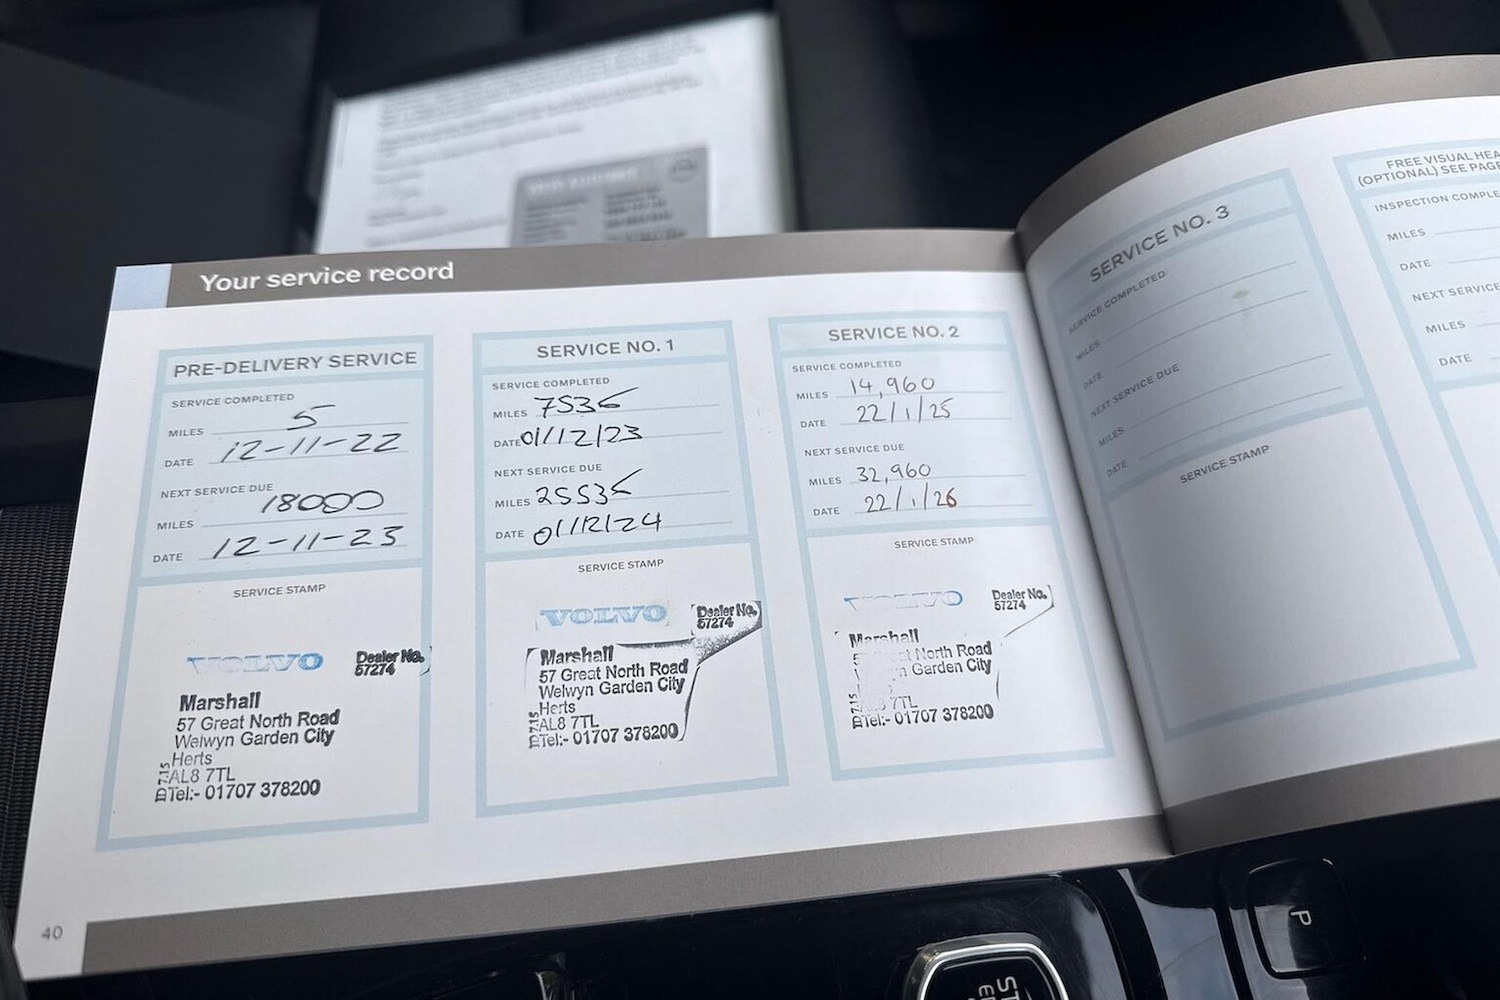 Your service record
PRE-DELIVERY SERVICE
SERVICE COMPLETED
MILES 5
DATE 12-11-22
NEXT SERVICE DUE
MILES 18000
DATE 12-11-23
SERVICE STAMP
VOLVO Dealer No.
57274
Marshall
57 Great North Road
Welwyn Garden City
Herts
AL8 7TL
Tel:- 01707 378200
SERVICE NO. 1
SERVICE COMPLETED
MILES 7536
DATE 01/12/23
NEXT SERVICE DUE
MILES 25536
DATE 01/12/24
SERVICE STAMP
VOLVO Dealer No.
57274
Marshall
57 Great North Road
Welwyn Garden City
Herts
AL8 7TL
Tel:- 01707 378200
SERVICE NO. 2
SERVICE COMPLETED
MILES 14,960
DATE 22/1/25
NEXT SERVICE DUE
MILES 32,960
DATE 22/1/26
SERVICE STAMP
VOLVO Dealer No.
57274
Marshall
North Road
Garden City
7TL
Tel:- 01707 378200
SERVICE NO. 3
SERVICE COMPLETED
MILES
DATE
NEXT SERVICE DUE
MILES
DATE
SERVICE STAMP
FREE VISUAL HEA
(OPTIONAL) SEE PAGE
INSPECTION COMPLE
MILES
DATE
NEXT SERVICE
MILES
DATE
40
P